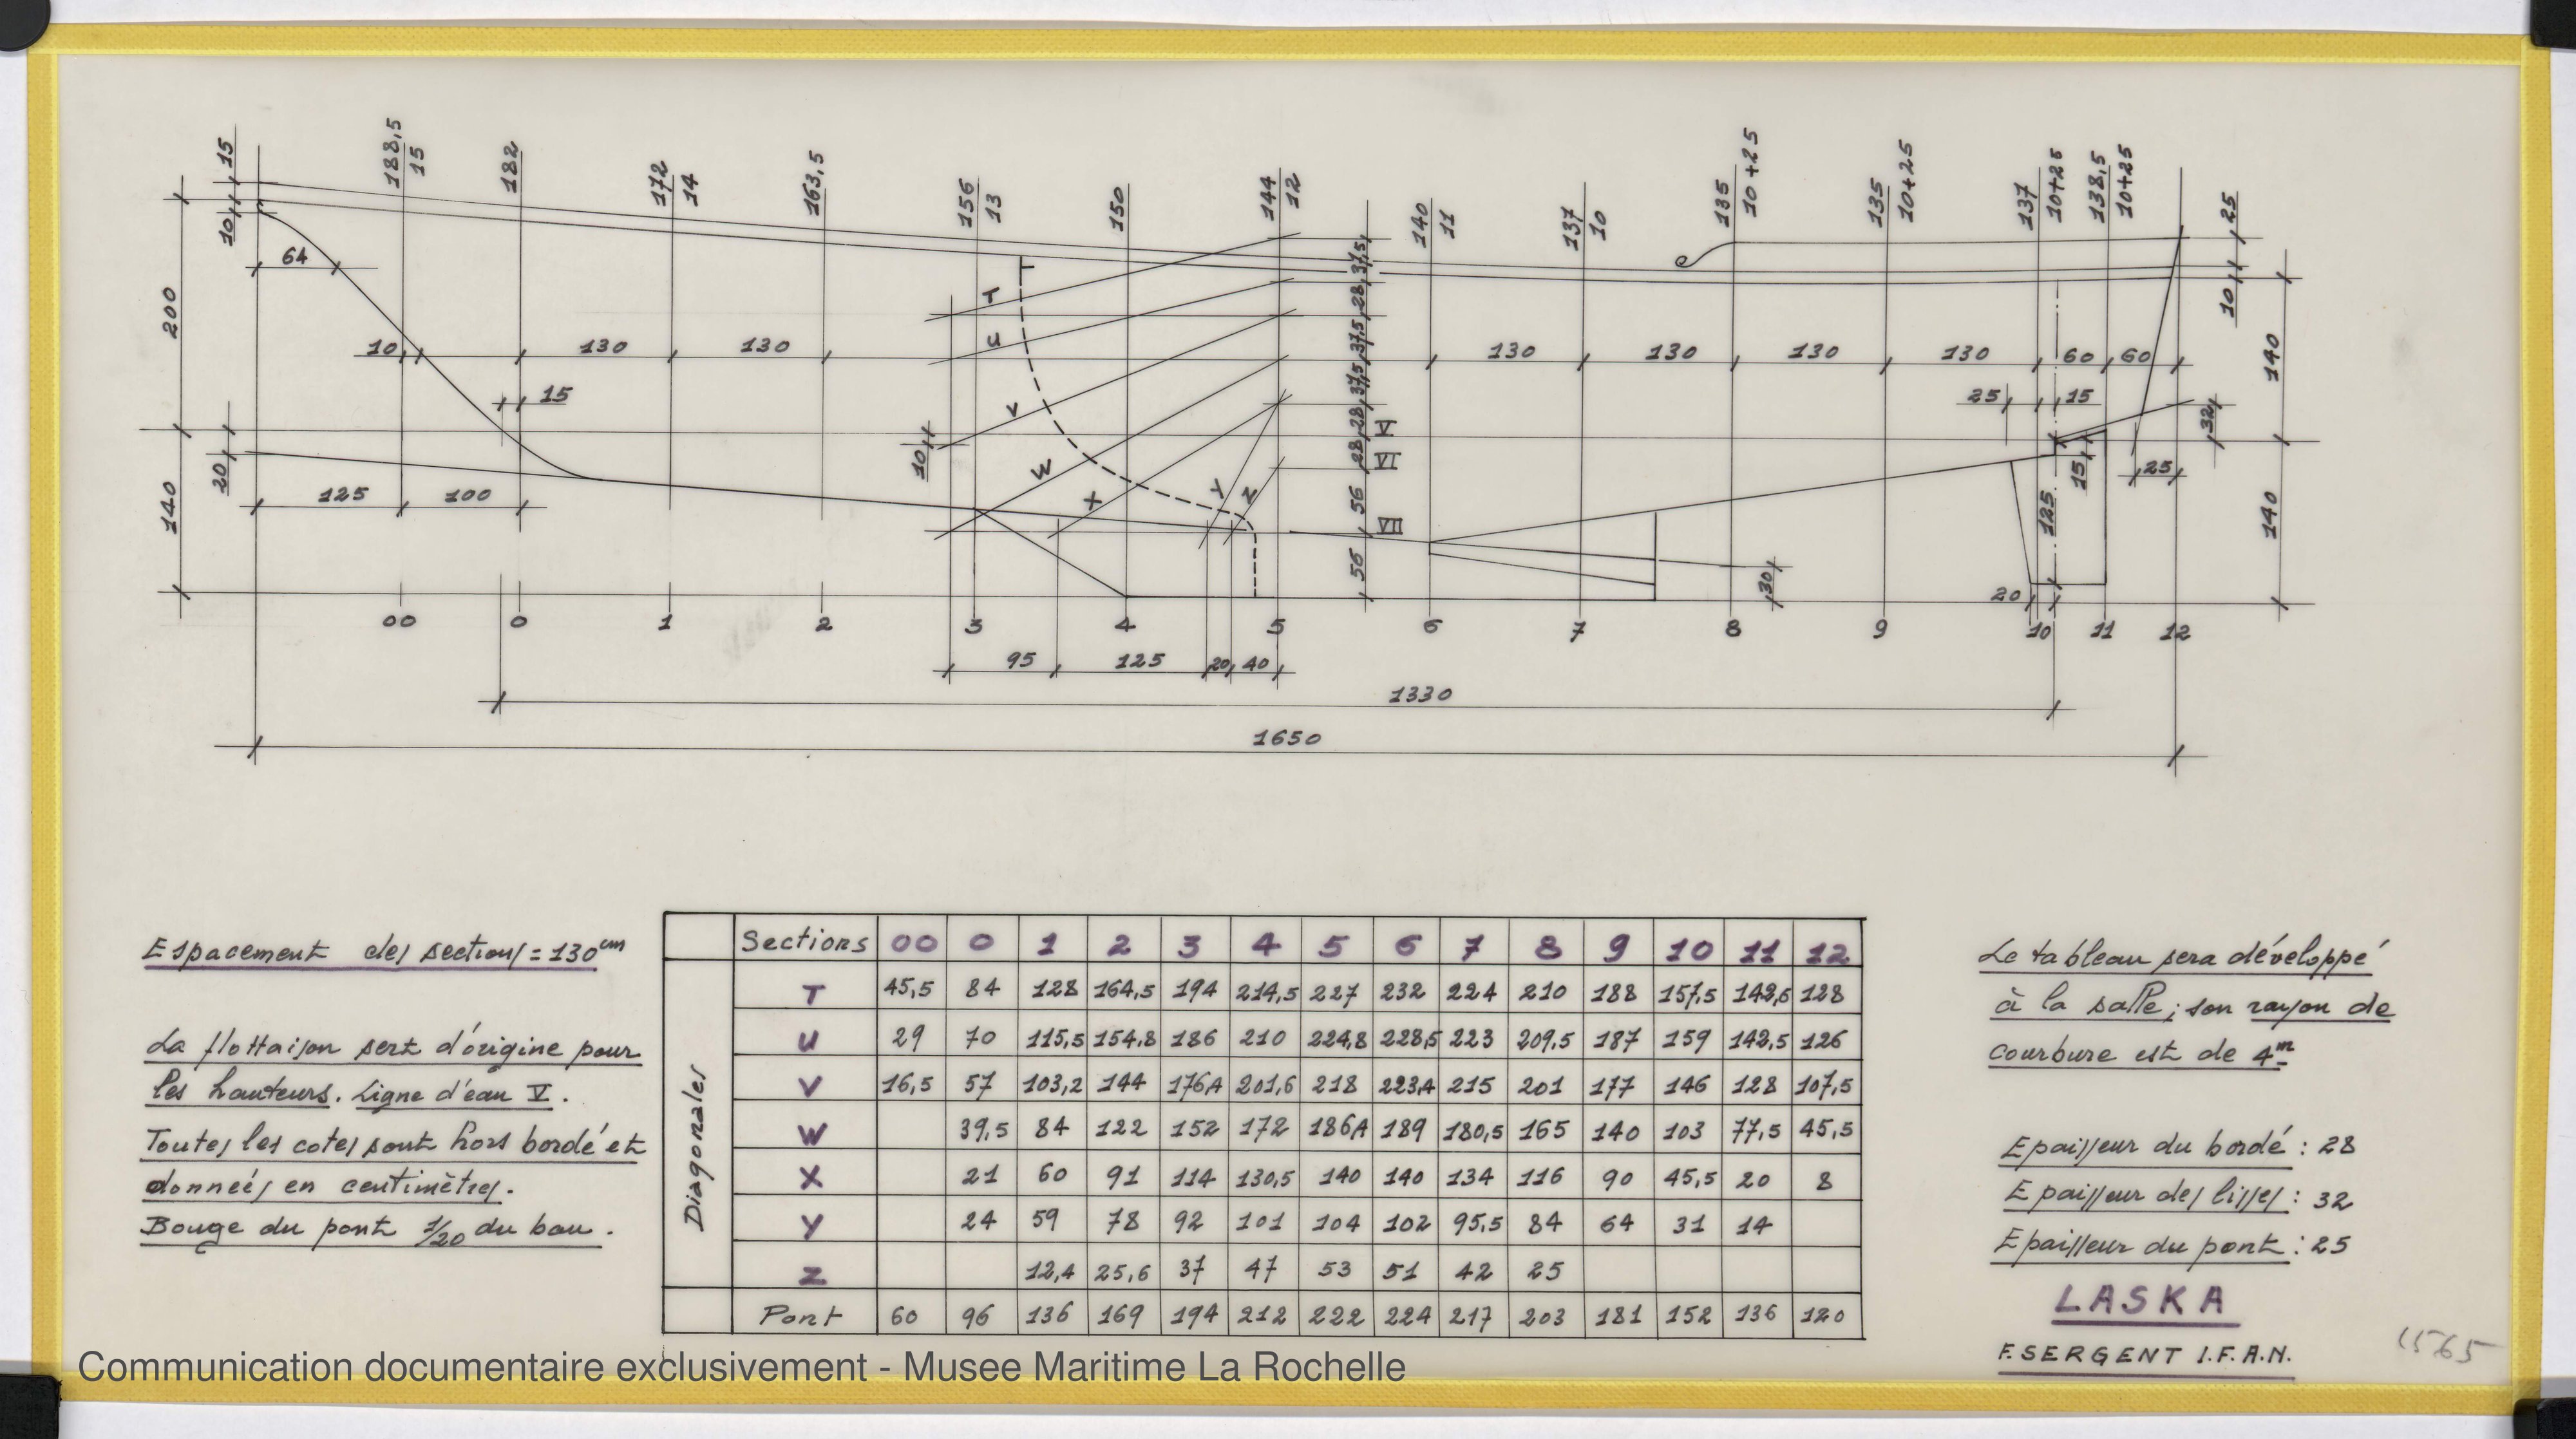 15
10
188,5
15
182
172
14
163,5
156
13
150
144
12
140
11
137
10
135
10+25
135
10+25
137
10+25
138,5
10+25
25
10
64
200
10
130
130
15
T
U
V
W
X
Y
Z
37,5
28
37,5
37,5
28
28
56
56
V
VI
VII
130
130
130
130
60
60
25
15
140
32
20
125
100
10
140
15
25
125
140
30
20
00 0 1 2 3 4 5 6 7 8 9 10 11 12
95 125 20 40
1330
1650
Espacement des sections = 130 cm
La flottaison sert d'origine pour
les hauteurs. Ligne d'eau V.
Toutes les cotes sont hors bordé et
données en centimètres.
Bouge du pont 1/20 du bau.
Diagonales
Sections 00 0 1 2 3 4 5 6 7 8 9 10 11 12
T 45,5 84 128 164,5 194 214,5 227 232 224 210 188 157,5 142,5 128
U 29 70 115,5 154,8 186 210 224,8 228,5 223 209,5 187 159 142,5 126
V 16,5 57 103,2 144 176,4 201,6 218 223,4 215 201 177 146 128 107,5
W 39,5 84 122 152 172 186,4 189 180,5 165 140 103 77,5 45,5
X 21 60 91 114 130,5 140 140 134 116 90 45,5 20 8
Y 24 59 78 92 101 104 102 95,5 84 64 31 14
Z 12,4 25,6 37 47 53 51 42 25
Pont 60 96 136 169 194 212 222 224 217 203 181 152 136 120
Le tableau sera développé
à la salle ; son rayon de
courbure est de 4 m
Epaisseur du bordé : 28
Epaisseur des lisses : 32
Epaisseur du pont : 25
LASKA
F. SERGENT I.F.A.N.
1565
Communication documentaire exclusivement - Musee Maritime La Rochelle